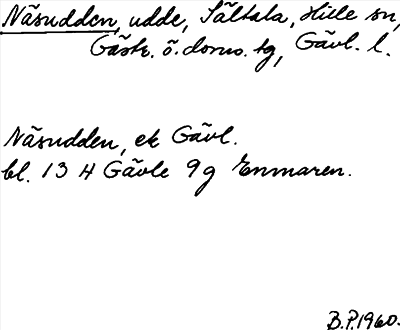 Näsudden, udde, Sältala, Hille sn,
Gästr. ö. doms. tg, Gävl. l.
Näsudden, ek Gävl.
bl. 13 H Gävle 9g Enmaren.
B.P. 1960.